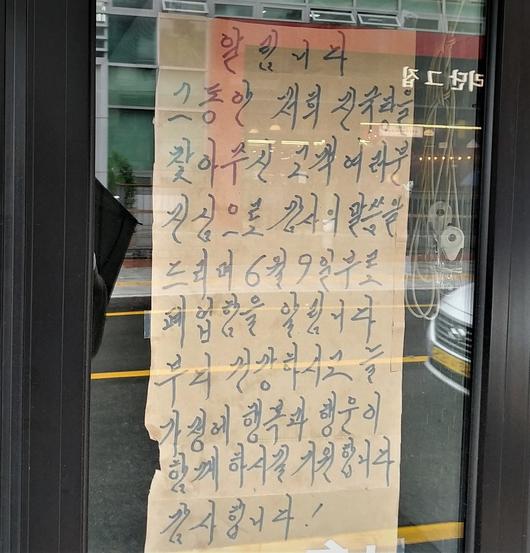 알림니다
그동안 저희 진국장을
찾아주신 고객여러분
진심으로 감사의말씀을
드리며 6월 9일부로
폐업함을 알림니다
부디 건강하시고 늘
가정에 행복과 행운이
함께 하시길 기원합니다
감사합니다!